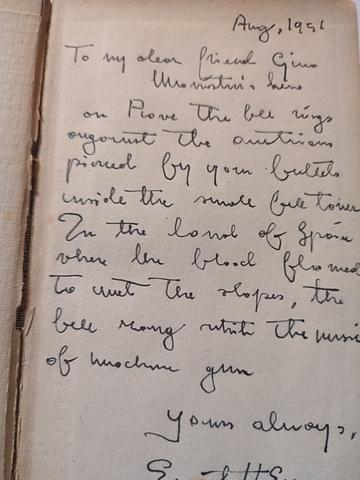 Aug, 1951
To my dear friend Gino
hero
on Piave the bee rings
against the austrians
pierced by your bullets
inside the small bee tower
In the land of Spain
where the blood flamed
To wet the slopes, the
bee rang with the music
of machine gun
Yours always,